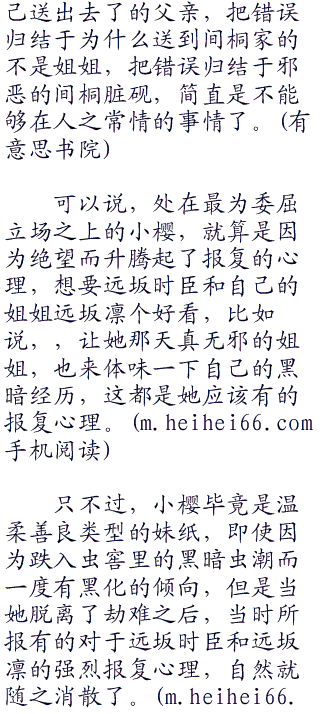 己送出去了的父亲，把错误
归结于为什么送到间桐家的
不是姐姐，把错误归结于邪
恶的间桐脏砚，简直是不能
够在人之常情的事情了。(有
意思书院)
可以说，处在最为委屈
立场之上的小樱，就算是因
为绝望而升腾起了报复的心
理，想要远坂时臣和自己的
姐姐远坂凛个好看，比如
说，，让她那天真无邪的姐
姐，也来体味一下自己的黑
暗经历，这都是她应该有的
报复心理。(m.heihei66.com
手机阅读)
只不过，小樱毕竟是温
柔善良类型的妹纸，即使因
为跌入虫窖里的黑暗虫潮而
一度有黑化的倾向，但是当
她脱离了劫难之后，当时所
报有的对于远坂时臣和远坂
凛的强烈报复心理，自然就
随之消散了。(m.heihei66.